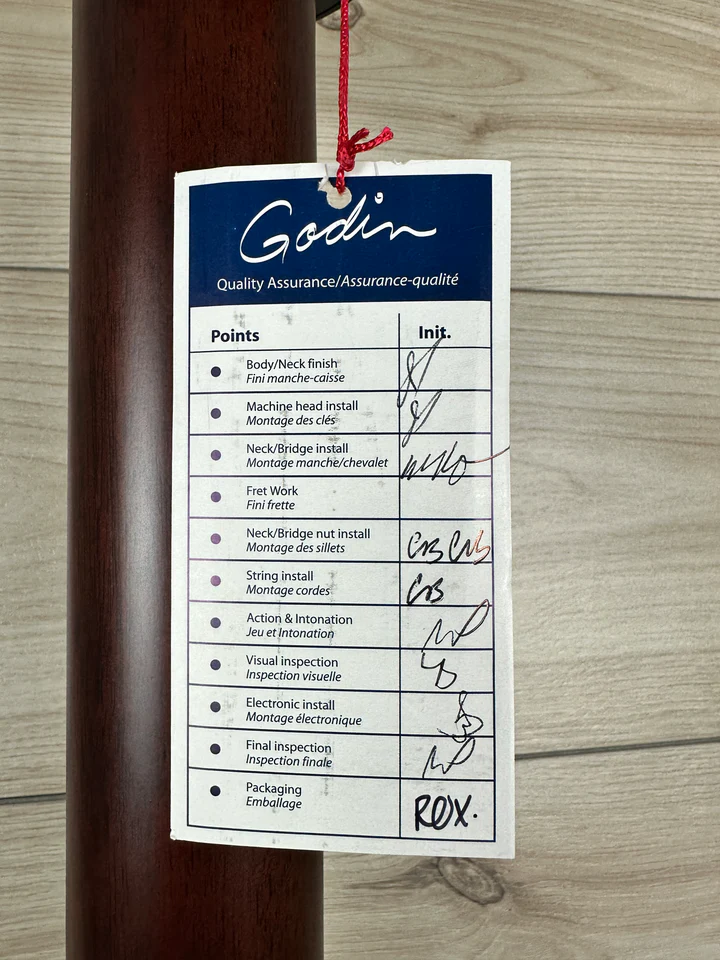 Godin
Quality Assurance/Assurance-qualité
Points Init.
Body/Neck finish
Fini manche-caisse
Machine head install
Montage des clés
Neck/Bridge install
Montage manche/chevalet
Fret Work
Fini frette
Neck/Bridge nut install
Montage des sillets
String install
Montage cordes
Action & Intonation
Jeu et Intonation
Visual inspection
Inspection visuelle
Electronic install
Montage électronique
Final inspection
Inspection finale
Packaging
Emballage
ROX.